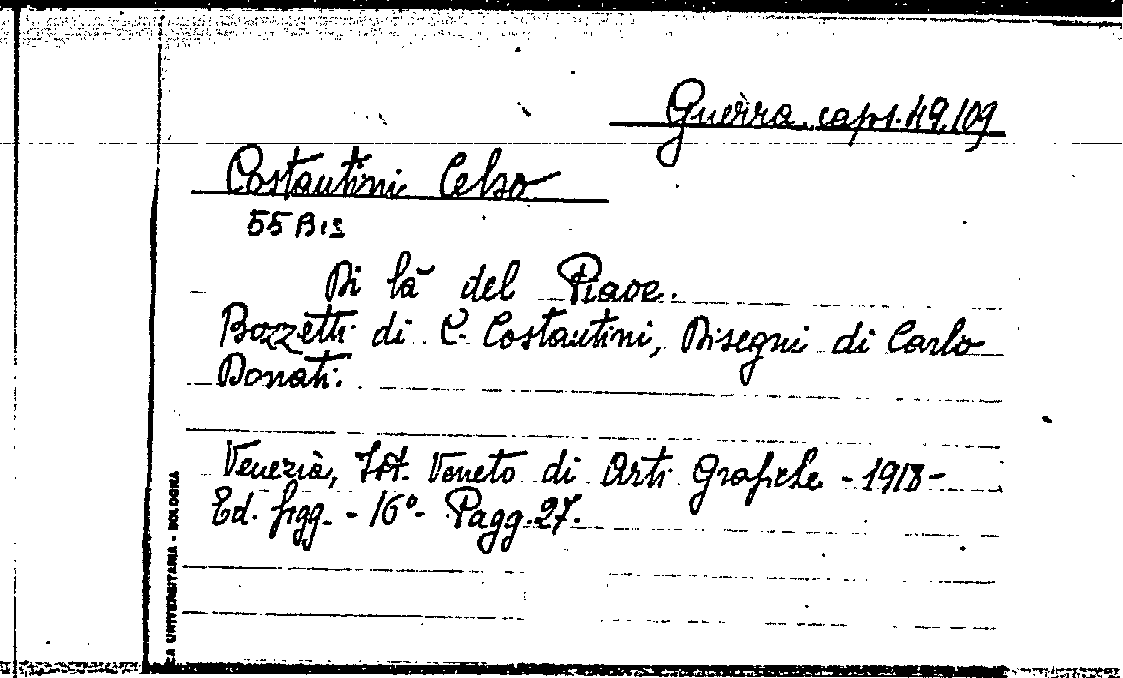 Guerra caps. 49.109
Costantini Celso
55 Bis
Di là del Piave.
Bozzetti di C. Costantini, Disegni di Carlo
Donati.
Venezia, Ist. Veneto di Arti Grafiche - 1918 -
Ed. figg. - 16° - Pagg. 27.
CA UNIVERSITARIA - BOLOGNA